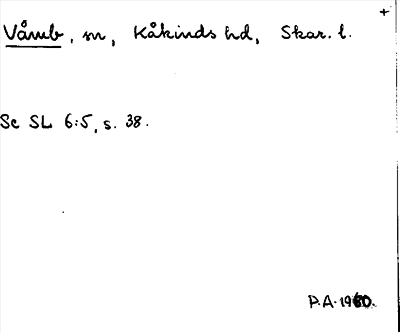 +
Våmb, sn, Kåkinds hd, Skar. l.
Se SL 6:5, s. 38.
P.A. 1960.